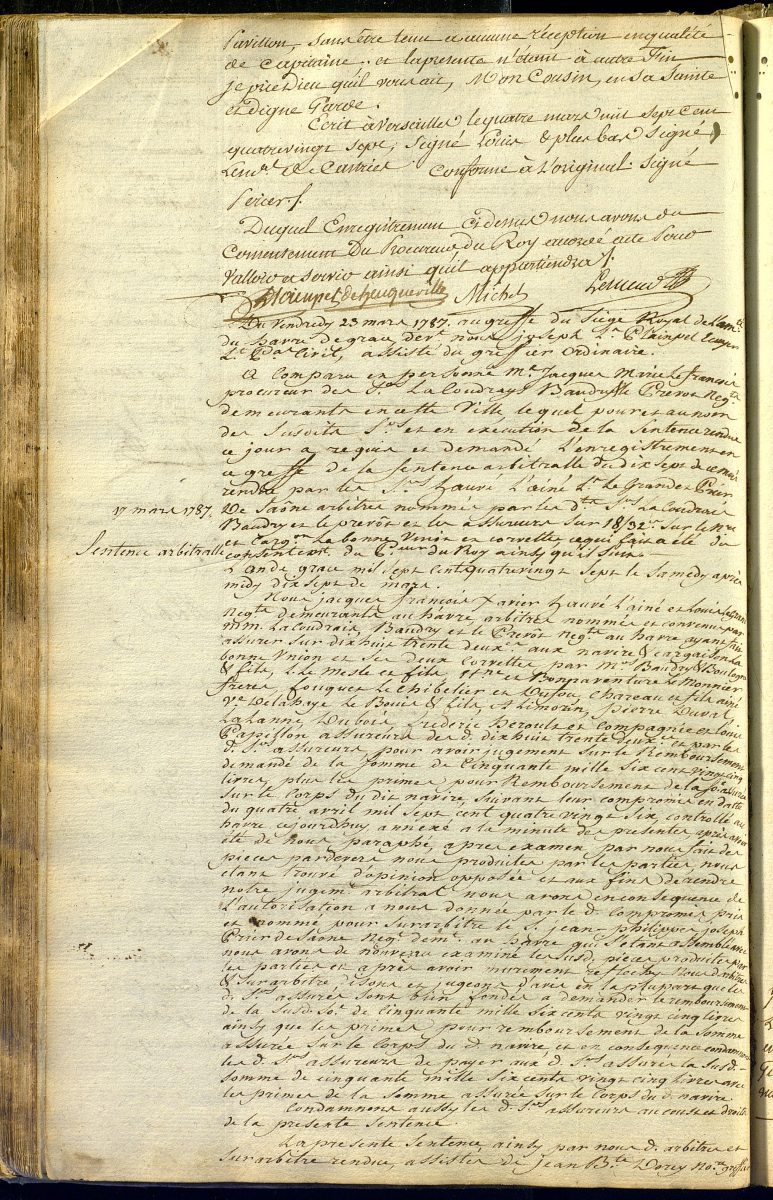 Pavillon, sans être tenu a aucune réception en qualité
de Capitaine. et la presente n'étant à autre Fin
je prie Dieu qu'il vous ait, Mon Cousin, en sa Sainte
et digne Garde.
Ecrit à Versailles le quatre mars mil sept cent
quatrevingt sept, signé Louis & plus bas signé
de Castries Conforme à L'original. signé
Perier ./.
Duquel Enregistrement Cidessus nous avons du
Consentement Du Procureur du Roy accordé acte Pour
Valloir et servir ainsi qu'il appartiendra ./.
Plainpel deheuqueville Michel Lesueur
Du Vendredy 23 mars 1787. au greffe du Siège Royal de Lam.té
du havre de grace, devt. nous joseph
Lt. Civil, assisté du greffier ordinaire.
A Comparu en personne Me. Jacques Marie le françois
procureur des Srs. La Coudrays Baudry & le Prevot Negts.
demeurants en cette Ville lequel pour et au nom
des Susdits Srs et en execution de la Sentence rendue
ce jour a requis et demandé L'enregistrement en
ce greffe de la Sentence arbitralle du dix Sept de ce mois
rendue par les Srs. hauré L'ainé Ls. Le Grand et Prier
17 mars 1787.
De Saône arbitres nommés par les dts. Srs La Coudrais
Baudry et le prevot et les assureurs sur 18/32es. sur le Nre
Sentence arbitralle
et Cargon. La bonne Union et corvette ce qui fait a été du
consentemt. du Pcureur du Roy ainsy qu'il suit
L'an de grace mil Sept Cent quatrevingt Sept le Samedy après
midy dix sept de mars.
Nous jacques françois Xavier hauré L'ainé et Louis Le Grand
Negts demeurants au havre, arbitres nommés et convenus par
MM. La Coudrais, Baudry et le Prevot Negts au havre ayant fait
assurer sur dix huit trente deuxe. aux navire & cargaison La
bonne Union et ses deux corvettes, par Mrs Baudry & Boulogne
& fils, Le Mesle et fils Bonaventure le Monnier
freres, fouquet Le Chibelier et Dufou, Chareau et fils ainé
Ve. Delahaye Le Bouis & fils, A Limozin, Pierre Duval,
Lalanne, Dubois, frederic heroult et Compagnie et Louis
Papillon assureurs des d. dix huit trente deuxe. et par les
d. Srs assureurs, pour avoir jugement sur le Remboursement
demandé de la somme de Cinquante mille Six cent vingt cinq
livres, plus les primes pour Remboursement de la se. assurée
sur le Corps du dit navire, suivant leur compromis en datte
du quatre avril mil sept cent quatre vingt Six, controllé au
havre cejourdhuy annexé a la minute des presentes après avoir
été de nous paraphé, après examen par nous fait des
pieces pardevers nous produites par les parties, nous
etant trouvé d'opinion opposée et aux fins de rendre
notre jugemt. arbitral nous avons en consequence de
L'autorisation a nous donnée par le d. compromis pris
et nommé pour surarbitre le S. jean-philippes joseph
Prier de Saone Negt. demt. au havre qui s'etant assemblé avec
nous avons de nouveau examiné les susd. pieces produites par
les parties et après avoir murement reflechy Nous d. arbitres
& surarbitre disons et jugeons d'avis en la plupart que les
d. Srs. assurés sont bien fondés a demander le remboursement
de la susd. se. de Cinquante mille six cents vingt cinq livres
ainsy que les primes pour remboursement de la somme
assurée sur le Corps du d. navire et en consequence condamnons
les d. Srs assureurs de payer aux d. Srs assurés la susd.
somme de cinquante mille six cents vingt cinq livres avec
les primes de la somme assurée sur le Corps du d. navire
Condamnons aussy les d. Srs assureurs au coust et droits
de la presente sentence
La presente Sentence, ainsy par nous d. arbitres et
surarbitre rendue, assistés de jean Bte. Dorey Nore. greffier